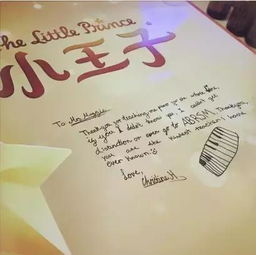 The Little Prince
小王子
To Ms. Maggie
Thankyou for teaching me piano for the whole time,
if you I didn't know you, I couldn't get
distinction or even go to ABRSM. Thankyou,
you are the kindest teacher I have
ever known
Love,
Christine M.